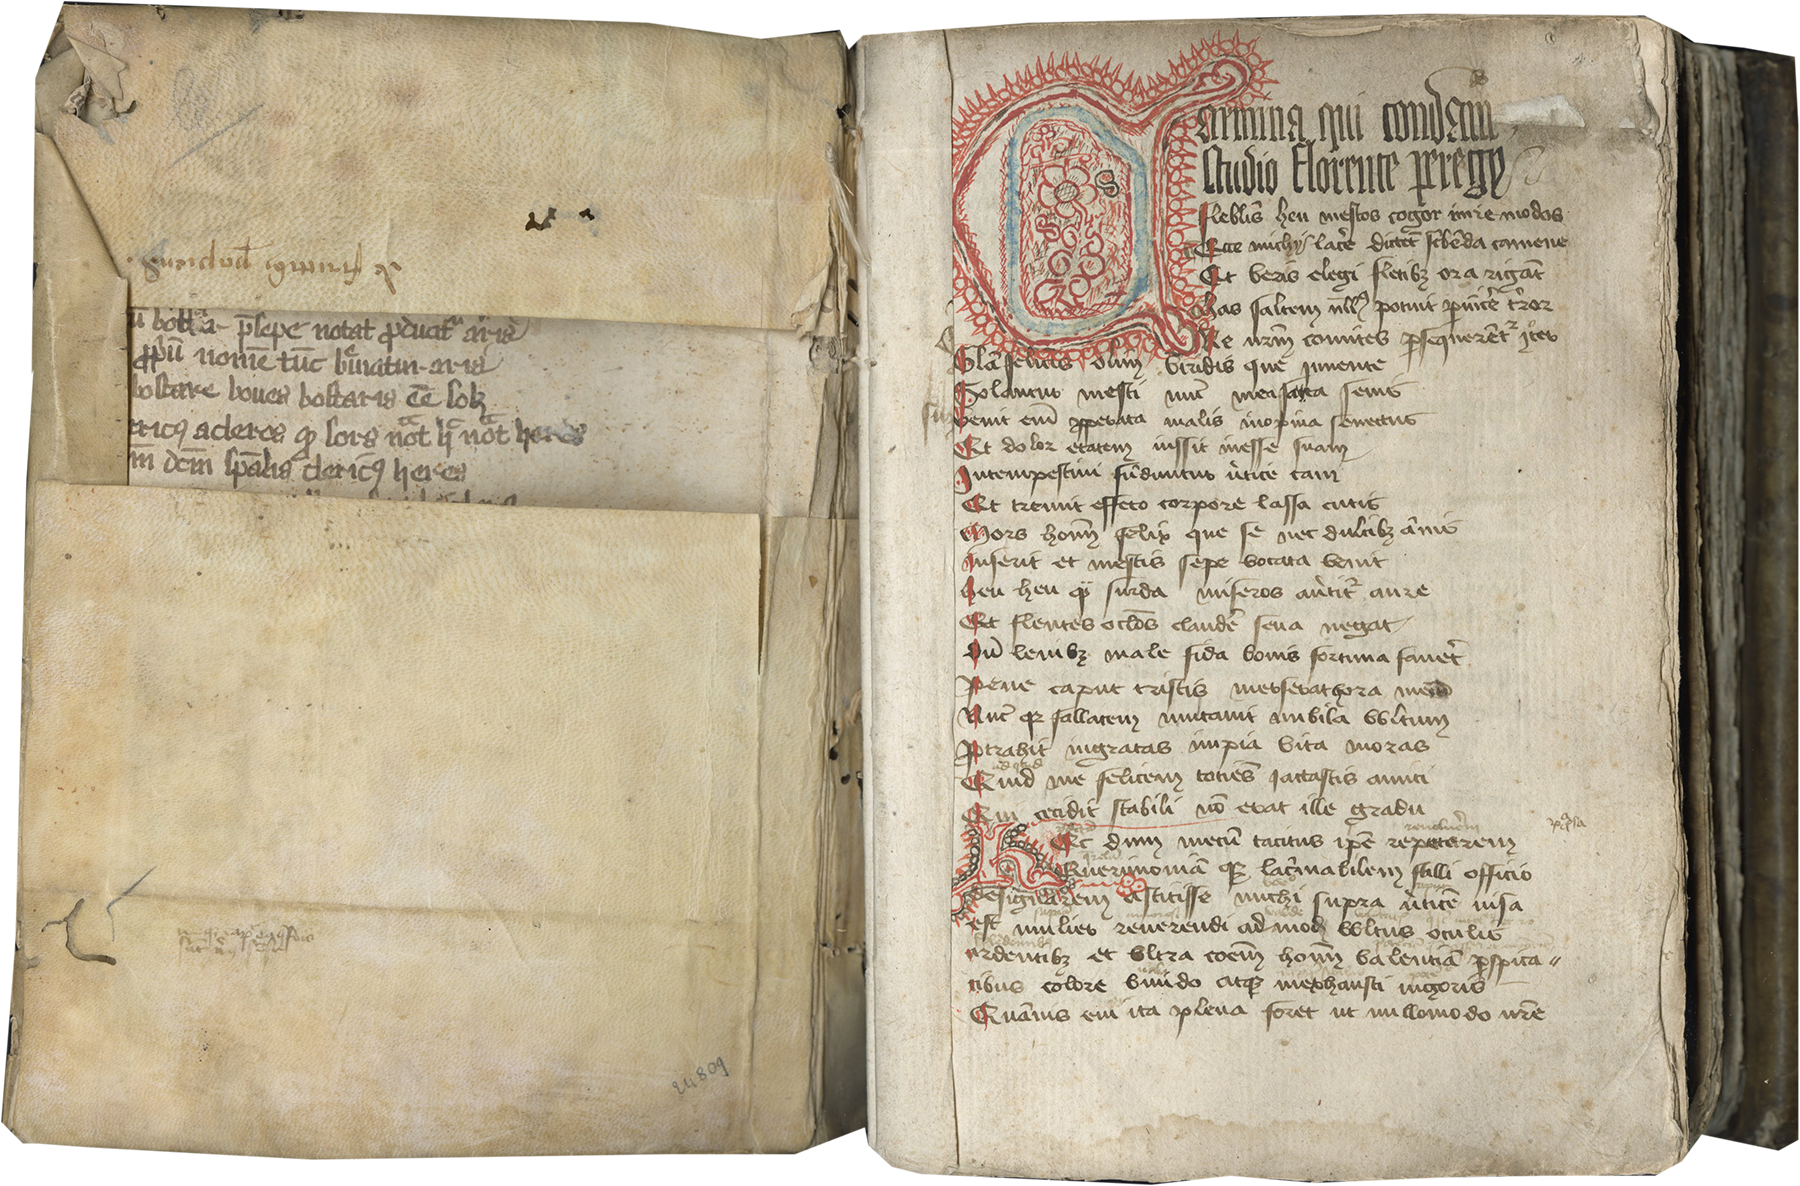 u bottar p̄sepe notat p̄duatʳ aria
p̄p̄ū nomē tūc bͥnatin aria
bostare boues bostaris cē lok
ericꝯ acleros ꝙ sors not hᶜ not heres
m dēm sp̄alis clericꝯ heres
24809
Carmina qui condam
studio florente peregy
flebilis heu mestos cogor inire modos
Ecce michi lac̄e dictēt sc̄bēda camene
Et veris elegi fletibꝫ ora rigāt
has saltem nll̄ꝰ potuit ꝑuīcē t̄ror
Ne nr̄m comites ꝑsequerēt iter
Glā felicis olim viridis que iuuente
Solantur mesti nūc mea fata senis
venit em̄ ꝓperata malis inopina senectus
Et dolor etatem iussit inesse suam
Intempestiui fūduntur v̄tice cani
Et tremit effeto corpore lassa cutis
Mors hom̄ felix que se nec dulcibꝫ ānis
Inserit et mestis sepe vocata venit
heu heu ꝙ̄ surda miseros aūtit aure
Et flentes oclōs claudē seua negat
Dū leuibꝫ male fida bonis fortuna fauēt
Pene caput tristis merserat hora meū
Nūc qꝫ fallacem mutauit nubila vvltum
Ptrahit ingratas impia vita moras
Quid me felicem tociēs iactastis amici
Qui cecidit stabili nō erat ille gradu
HEc dum mecū tacitus ip̄e repeterem
Querimoniā qꝫ lac̄mabilem stilli officio
Designarem astitisse michi supra v̄ticē uisa
est mulier reuerendi admodꝫ vvltus oculis
ardentibꝫ et vltra coēm hom̄ valentiā ꝑspica〃
cibus colore viuido atqꝫ inexhausti uigoris
Quāuis em̄ ita plena foret ut nullomodo nr̄e